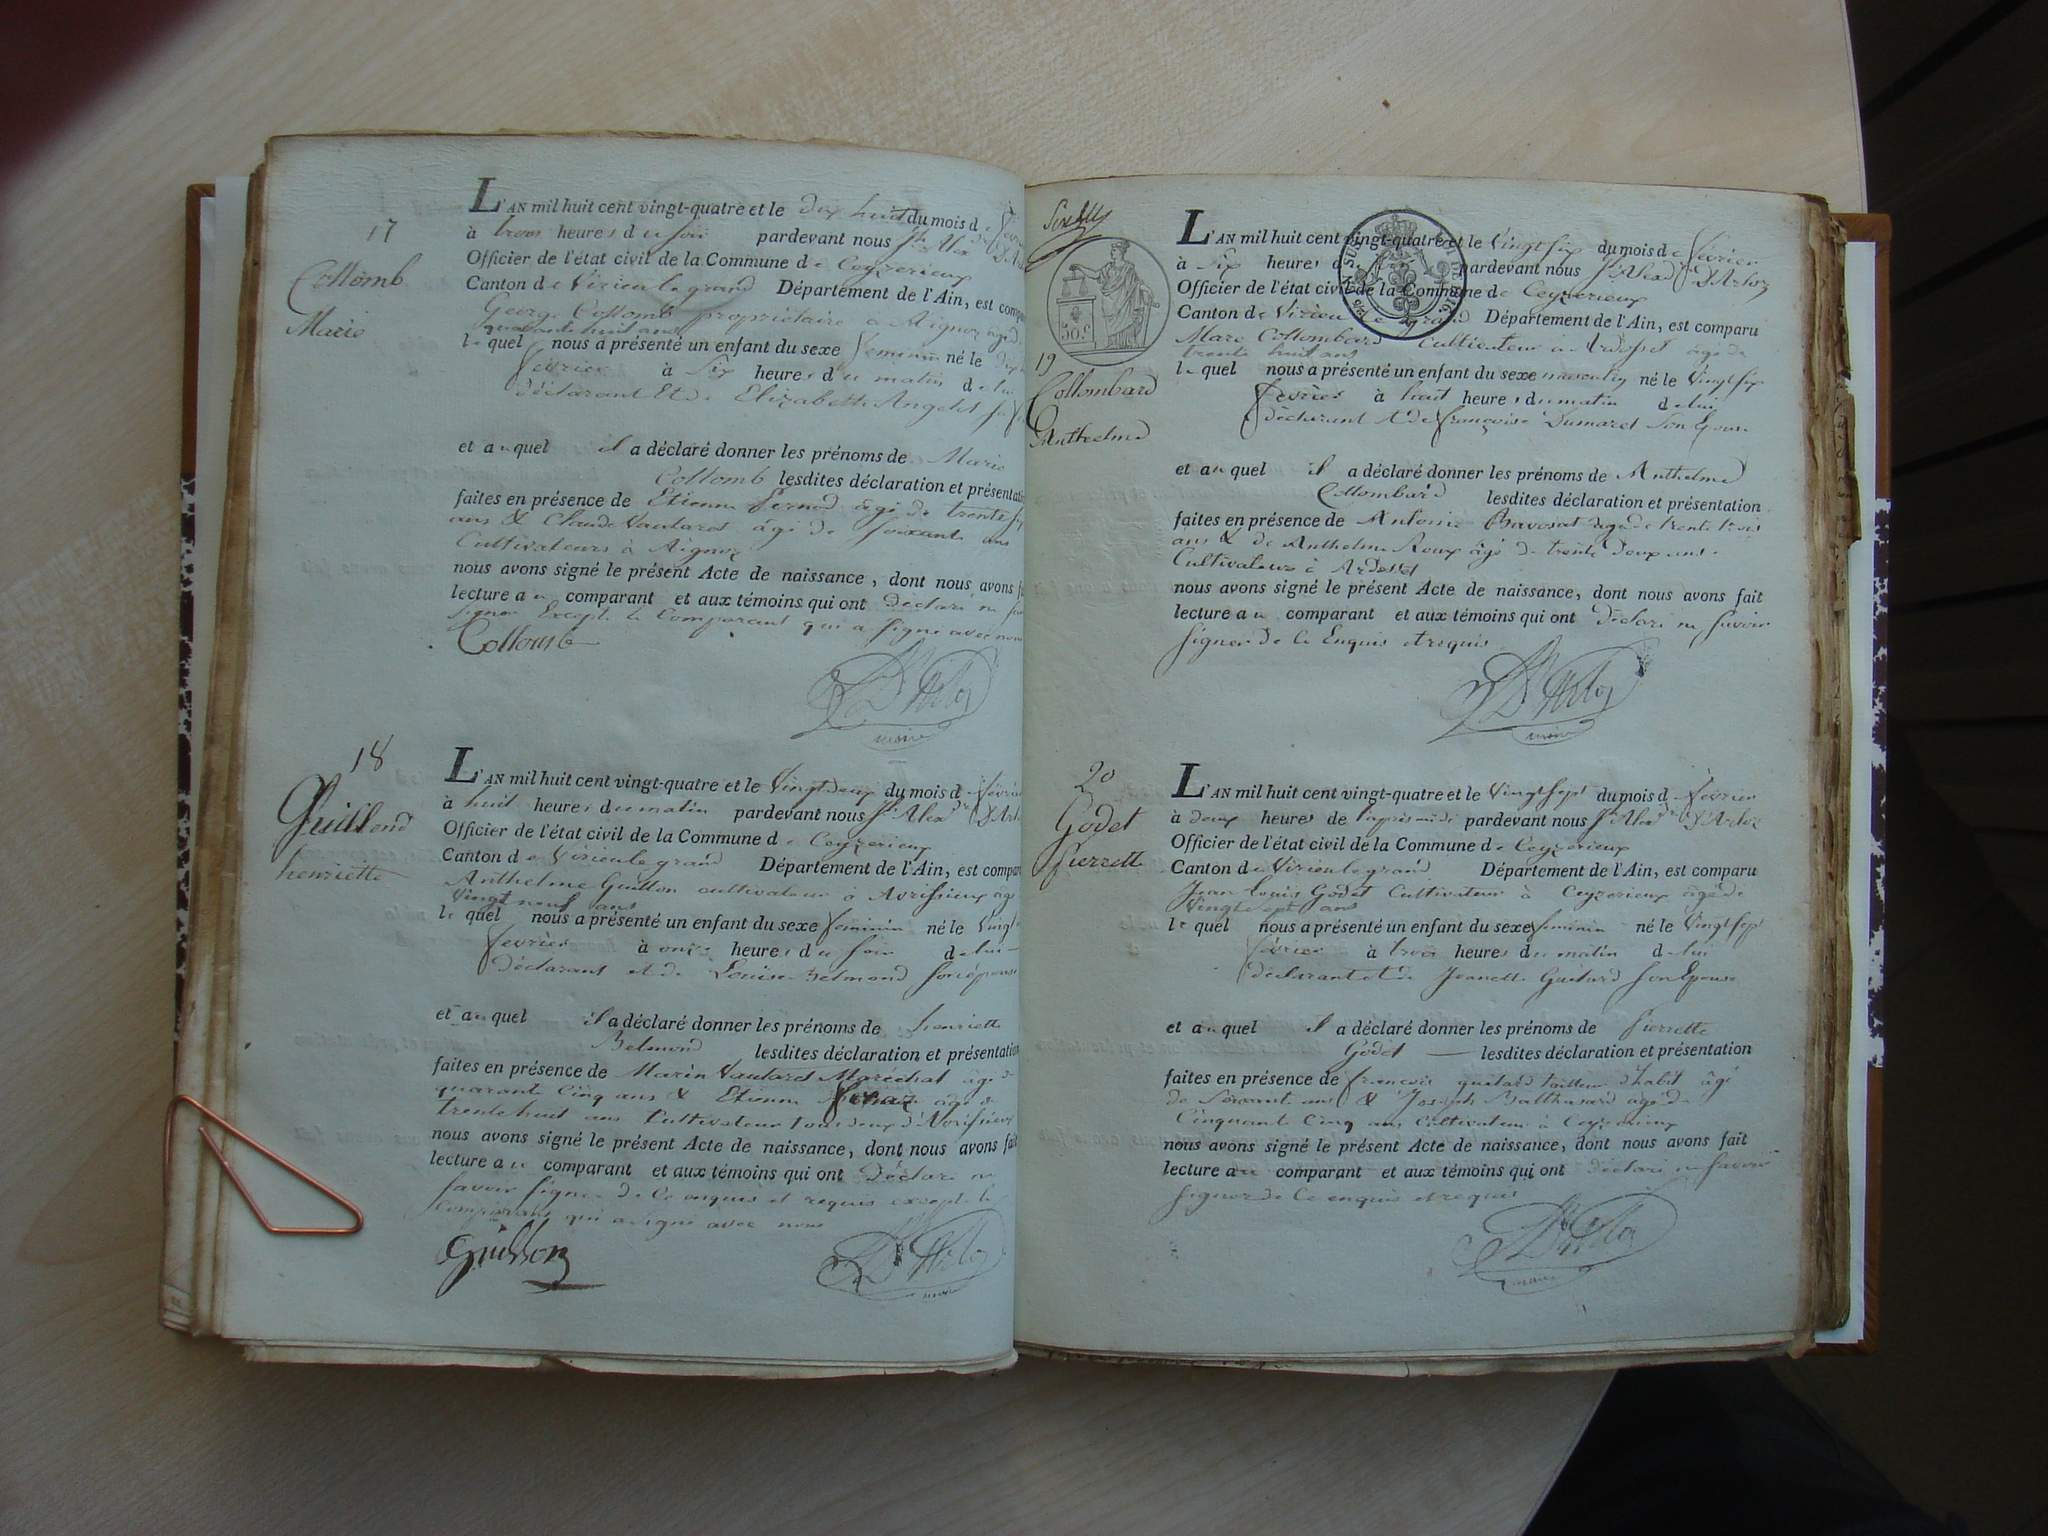 17
Collomb
Marie
L'AN mil huit cent vingt-quatre et le dix huit du mois de fevrier
à trois heures du soir pardevant nous Jh Alexdre D'Arloz
Officier de l'état civil de la Commune de Ceyzerieux
Canton de Virieu le grand Département de l'Ain, est comparu
George Collomb propriétaire à Aignoz âgé de
quarante huit ans
lequel nous a présenté un enfant du sexe feminin né le dix
fevrier à Six heures du matin de lui
déclarant Et de Elizabeth Angelot
et auquel il a déclaré donner les prénoms de Marie
Collomb lesdites déclaration et présentation
faites en présence de Etienne âgé de trente
ans & Claude Vautaret âgé de soixante ans
Cultivateurs à Aignoz
nous avons signé le présent Acte de naissance, dont nous avons fait
lecture au comparant et aux témoins qui ont déclaré ne savoir
signer Excepté le Comparant qui a signé avec nous
Collomb
D'Arloz
maire
18
Guillond
henriette
L'AN mil huit cent vingt-quatre et le Vingt deux du mois de fevrier
à huit heures du matin pardevant nous Jh Alexdre D'Arloz
Officier de l'état civil de la Commune de Ceyzerieux
Canton de Virieu le grand Département de l'Ain, est comparu
Anthelme Guillon cultivateur à Avrissieux âgé
Vingt neuf ans
lequel nous a présenté un enfant du sexe feminin né le Vingt
fevrier à onze heures du soir de lui
déclarant et de Louise Belmond son épouse
et auquel il a déclaré donner les prénoms de henriette
Belmond lesdites déclaration et présentation
faites en présence de Marin Vautaret Maréchal âgé de
quarante Cinq ans & Etienne âgé de
trente huit ans Cultivateur tous deux d'Avrissieux
nous avons signé le présent Acte de naissance, dont nous avons fait
lecture au comparant et aux témoins qui ont Déclaré ne
savoir signer de Ce enquis et requis excepté le
comparant qui a signé avec nous
Guillon
D'Arloz
maire
50c.
19
Collombard
Anthelme
L'AN mil huit cent vingt-quatre et le Vingt six du mois de fevrier
à Six heures du pardevant nous Jh Alexdre D'Arloz
Officier de l'état civil de la Commune de Ceyzerieux
Canton de Virieu le grand Département de l'Ain, est comparu
Marc Collombard Cultivateur à Ardosset âgé de
trente huit ans
lequel nous a présenté un enfant du sexe masculin né le Vingt six
fevrier à huit heures du matin de lui
déclarant & de françoise Dumaret son Epouse
et auquel il a déclaré donner les prénoms de Anthelme
Collombard lesdites déclaration et présentation
faites en présence de Antoine Bavosat âgé de trente trois
ans & de Anthelme Roux âgé de trente deux ans
Cultivateurs à Ardosset
nous avons signé le présent Acte de naissance, dont nous avons fait
lecture au comparant et aux témoins qui ont déclaré ne savoir
signer de Ce Enquis et requis
D'Arloz
maire
20
Godet
Pierrette
L'AN mil huit cent vingt-quatre et le Vingt sept du mois de fevrier
à deux heures de l'après midi pardevant nous Jh Alexdre D'Arloz
Officier de l'état civil de la Commune de Ceyzerieux
Canton de Virieu le grand Département de l'Ain, est comparu
Jean Louis Godet Cultivateur à Ceyzerieux âgé de
Vingt sept ans
lequel nous a présenté un enfant du sexe feminin né le Vingt sept
fevrier à trois heures du matin de lui
déclarant et de Jeanette Guitard son Epouse
et auquel il a déclaré donner les prénoms de Pierrette
Godet lesdites déclaration et présentation
faites en présence de francois guitard tailleur d'habit âgé
de Soixante ans & Joseph Balthazard âgé de
Cinquante Cinq ans Cultivateur à Ceyzerieux
nous avons signé le présent Acte de naissance, dont nous avons fait
lecture au comparant et aux témoins qui ont déclaré ne savoir
signer de Ce enquis et requis
D'Arloz
maire